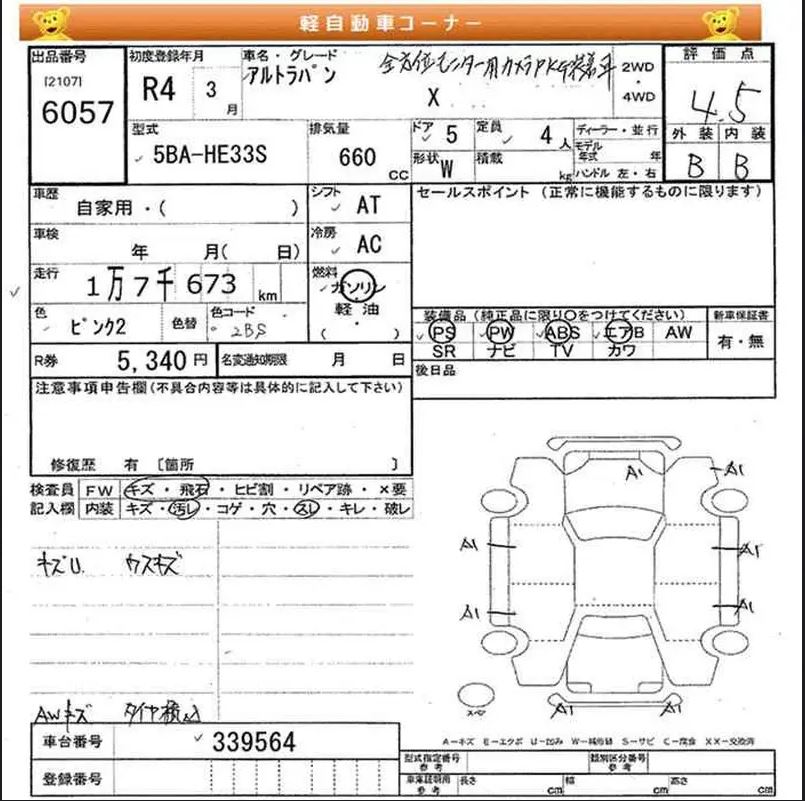 軽自動車コーナー
出品番号
[2107]
6057
初度登録年月
R4 3 月
車名・グレード
アルトラパン
全方位モニター用カメラPKG装着車
X
2WD
・
4WD
評価点
4.5
外装 内装
B B
型式
5BA-HE33S
排気量
660 CC
ドア 5
定員 4 人
形状 W
積載 kg
ディーラー・並行
モデル年式 年
ハンドル 左・右
車歴
自家用・( )
シフト
AT
車検
年 月( 日)
冷房
AC
走行
1万7千673 km
燃料
ガソリン
軽油
( )
色
ピンク2
色替
色コード
2BS
R券 5,340 円
名変通知期限 月 日
セールスポイント (正常に機能するものに限ります)
装備品 (純正品に限り〇をつけてください)
PS PW ABS エアB AW
SR ナビ TV カワ
新車保証書
有・無
後日品
注意事項申告欄(不具合内容等は具体的に記入して下さい)
修復歴 有 〔箇所 〕
検査員記入欄
FW キズ・飛石・ヒビ割・リペア跡・×要
内装 キズ・汚レ・コゲ・穴・スレ・キレ・破レ
キズU ウスキズ
AWキズ タイヤ積込
A1
A1
A1
A1
A1
A1
A1 A1
スペア
A-キズ E-エクボ U-凹み W-補修跡 S-サビ C-腐食 XX-交換済
車台番号 339564
登録番号
型式指定番号
参考
類別区分番号
参考
車庫証明用
参考
長さ cm
幅 cm
高さ cm